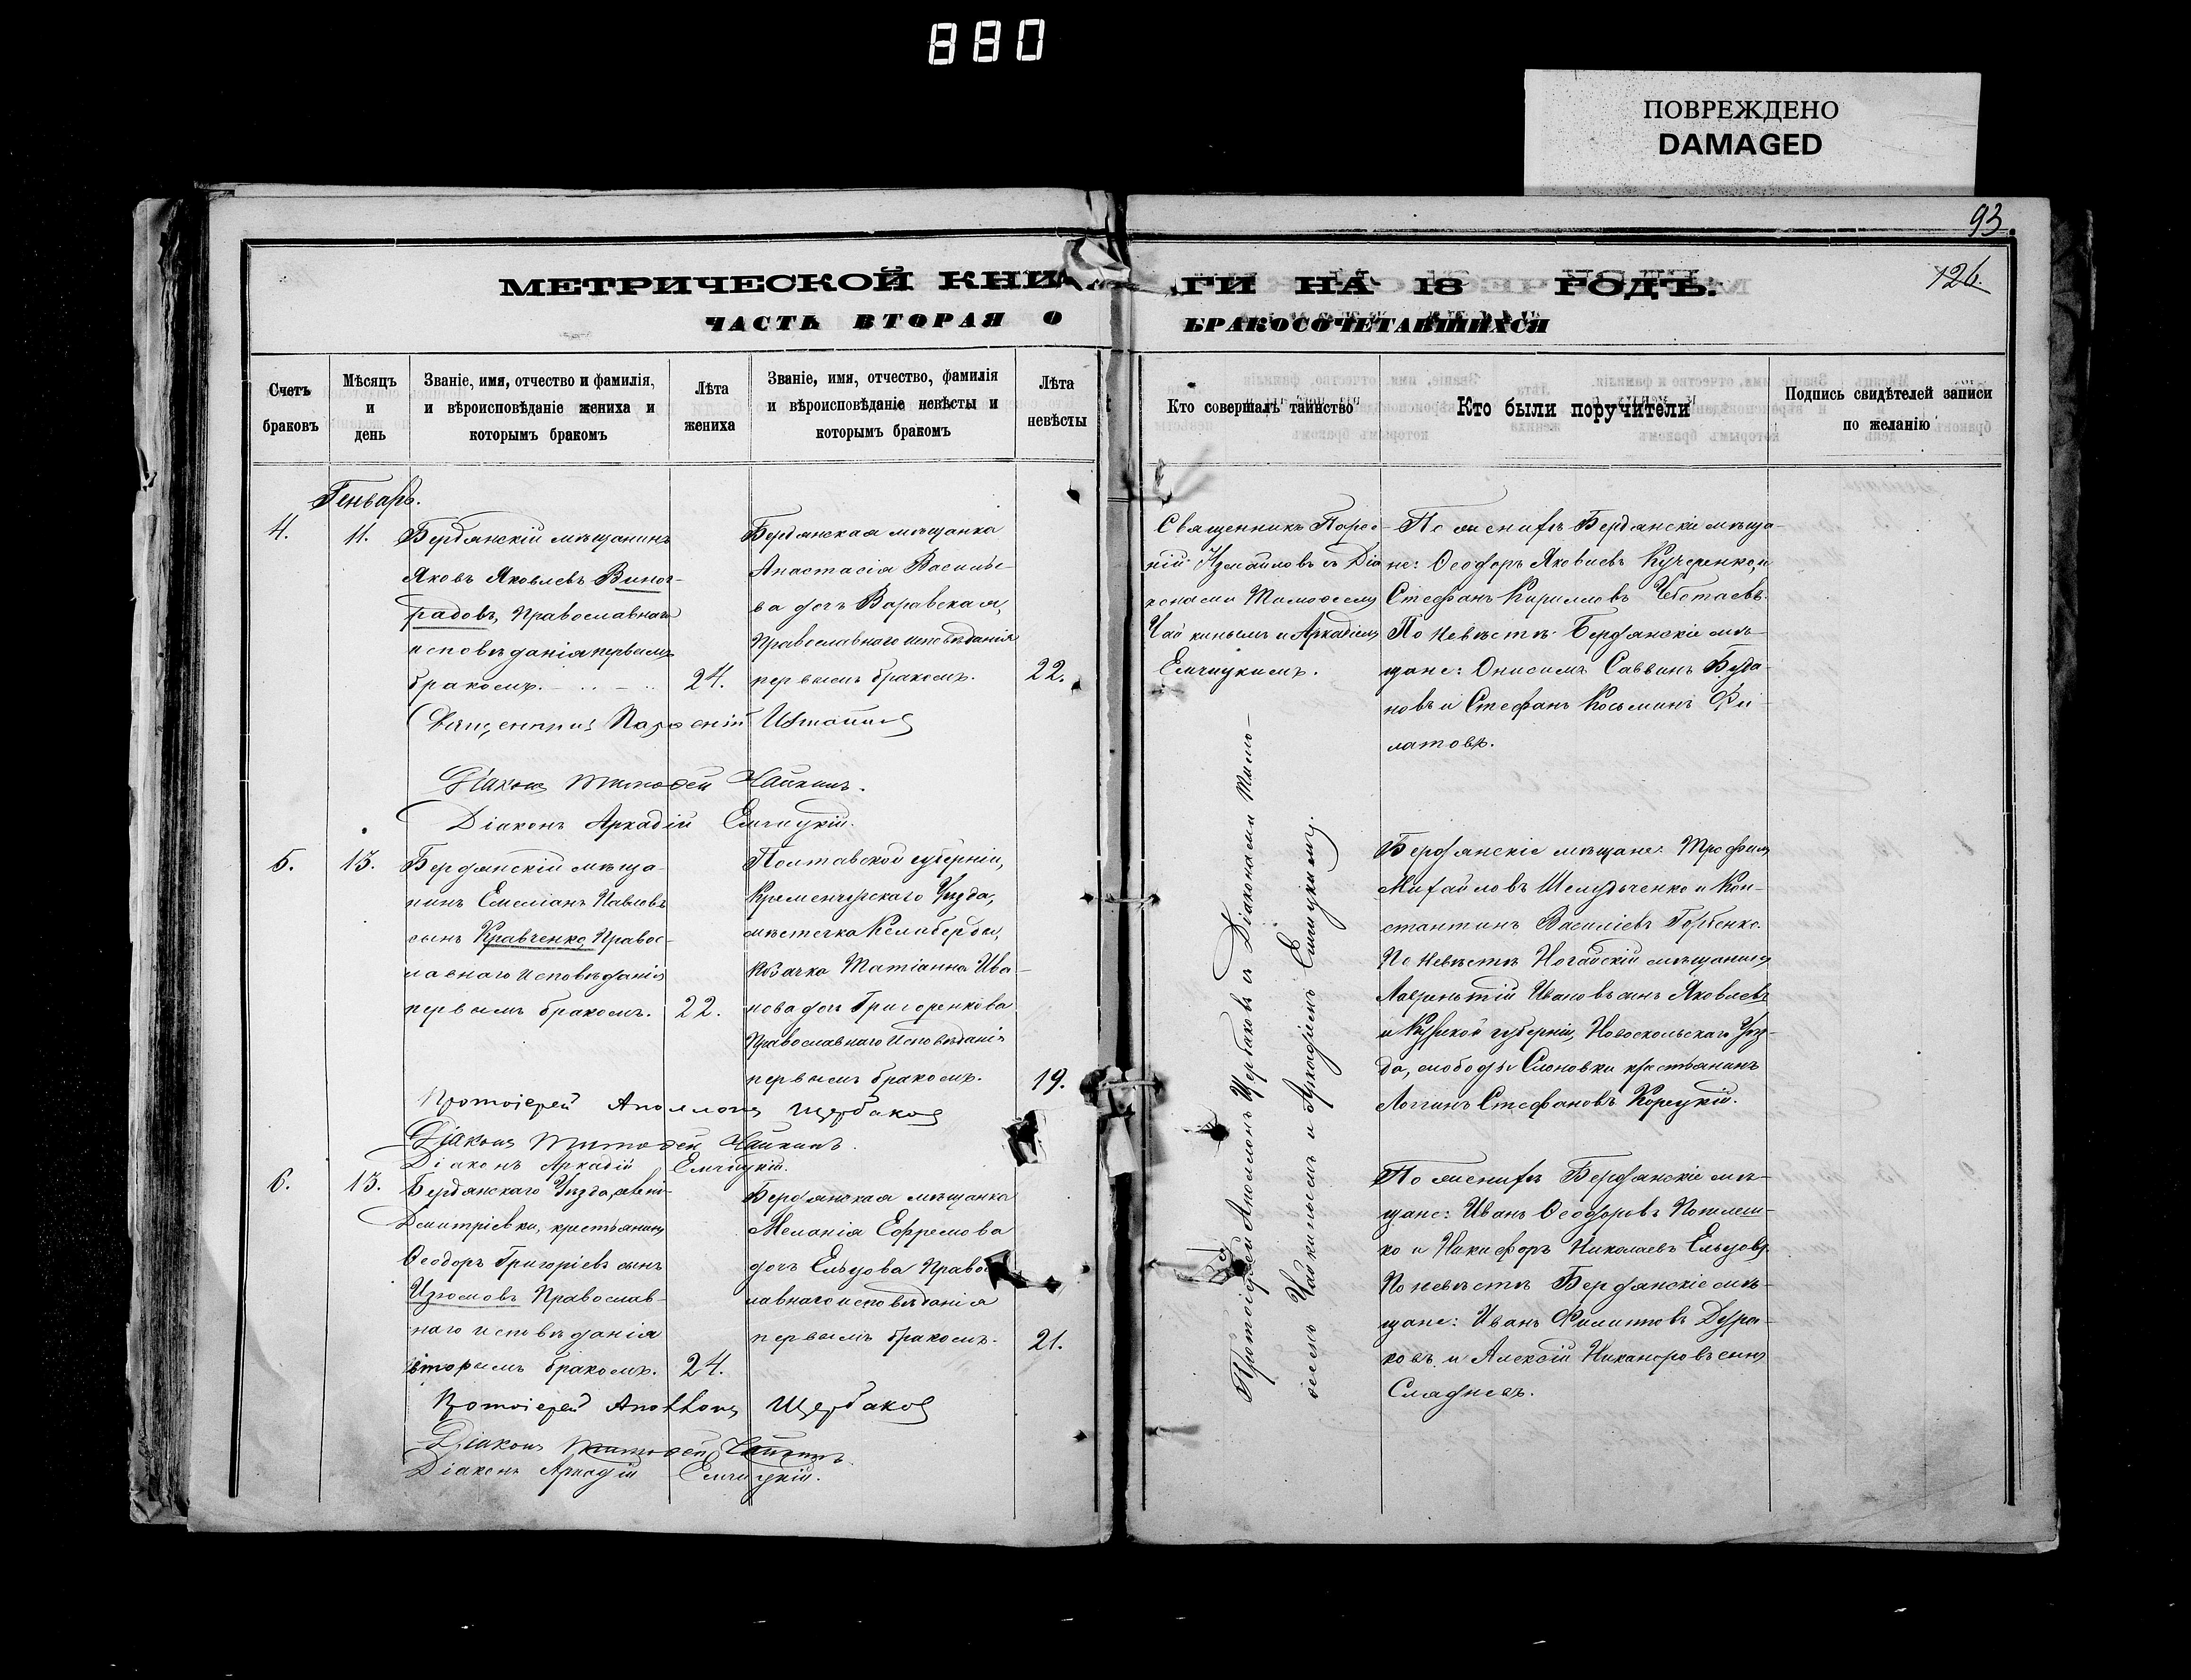 880
ПОВРЕЖДЕНО
DAMAGED
93.
126.
МЕТРИЧЕСКОЙ КНИ
ГИ НА 18 ГОДЪ.
ЧАСТЬ ВТОРАЯ О
БРАКОСОЧЕТАВШИХСЯ
Счетъ браковъ
Мѣсяцъ и день
Званіе, имя, отчество и фамилія, и вѣроисповѣданіе жениха и которымъ бракомъ
Лѣта жениха
Званіе, имя, отчество, фамилія и вѣроисповѣданіе невѣсты и которымъ бракомъ
Лѣта невѣсты
Кто совершалъ таинство
Кто были поручители
Подпись свидѣтелей записи по желанію
Генварь.
4.
11.
Бердянскій мѣщанинъ
Яковъ Яковлевъ Виног-
радовъ, Православнаго
исповѣданія первымъ
бракомъ.
24.
Бердянская мѣщанка
Анастасія Василье-
ва дочь Варавская,
Православнаго исповѣданія
первымъ бракомъ.
22.
Священникъ
Измайловъ съ Діа
конами Тимофеемъ
Чайкинымъ и Аркадіемъ
Емчицкимъ.
По женихѣ Бердянскіе мѣща-
не: Ѳеодоръ Яковлевъ Кучеренко, и
Стефанъ Кирилловъ
По невѣстѣ: Бердянскіе мѣ-
щане: Онисимъ Саввинъ Буда-
новъ и Стефанъ Косьминъ Фи-
латовъ.
Священникъ
Діаконъ Тимофей Чайкинъ.
Діаконъ Аркадій Емчицкій.
5.
13.
Бердянскій мѣща-
нинъ Емеліанъ Павловъ
сынъ Кравченко, Правос-
лавнаго исповѣданія
первымъ бракомъ.
22.
Полтавской губерніи,
Кременчугскаго Уѣзда,
мѣстечка Келиберды,
козачка Татіанна Ива-
нова дочь Григоренкова
Православнаго исповѣданія
первымъ бракомъ.
19.
Протоіерей Аполлонъ Щербаковъ съ Діаконами Тимо-
ѳеемъ Чайкинымъ и Аркадіемъ Емчицкимъ.
Бердянскіе мѣщане: Трофимъ
Михайловъ Шелудченко и Кон-
стантинъ Василіевъ Горбенко.
По невѣстѣ Ногайскій мѣщанинъ
Лаврентій Ивановъ сынъ Яковлевъ
и Курской губерніи, Новоскольскаго Уѣз-
да, слободы Слоновки крестьянинъ
Логгинъ Стефановъ Корецкій.
Протоіерей Аполлонъ Щербаковъ
Діаконъ Тимофей Чайкинъ.
Діаконъ Аркадій Емчицкій.
6.
13.
Бердянскаго Уѣзда,
Дмитріевки, крестьянинъ
Ѳеодоръ Григоріевъ сынъ
Изюмовъ Православ-
наго исповѣданія
вторымъ бракомъ.
24.
Бердянская мѣщанка
Меланія Ефремова
дочь Ельцова Правос
лавнаго исповѣданія
первымъ бракомъ.
21.
По женихѣ Бердянскіе мѣ-
щане: Иванъ Ѳеодоровъ
ко и Никифоръ Николаевъ Ельцовъ.
По невѣстѣ Бердянскіе мѣ-
щане: Иванъ Филипповъ Дура-
ковъ и Алексій Никаноровъ сынъ
Сладневъ.
Протоіерей Аполлонъ Щербаковъ
Діаконъ Тимофей Чайкинъ.
Діаконъ Аркадій Емчицкій.